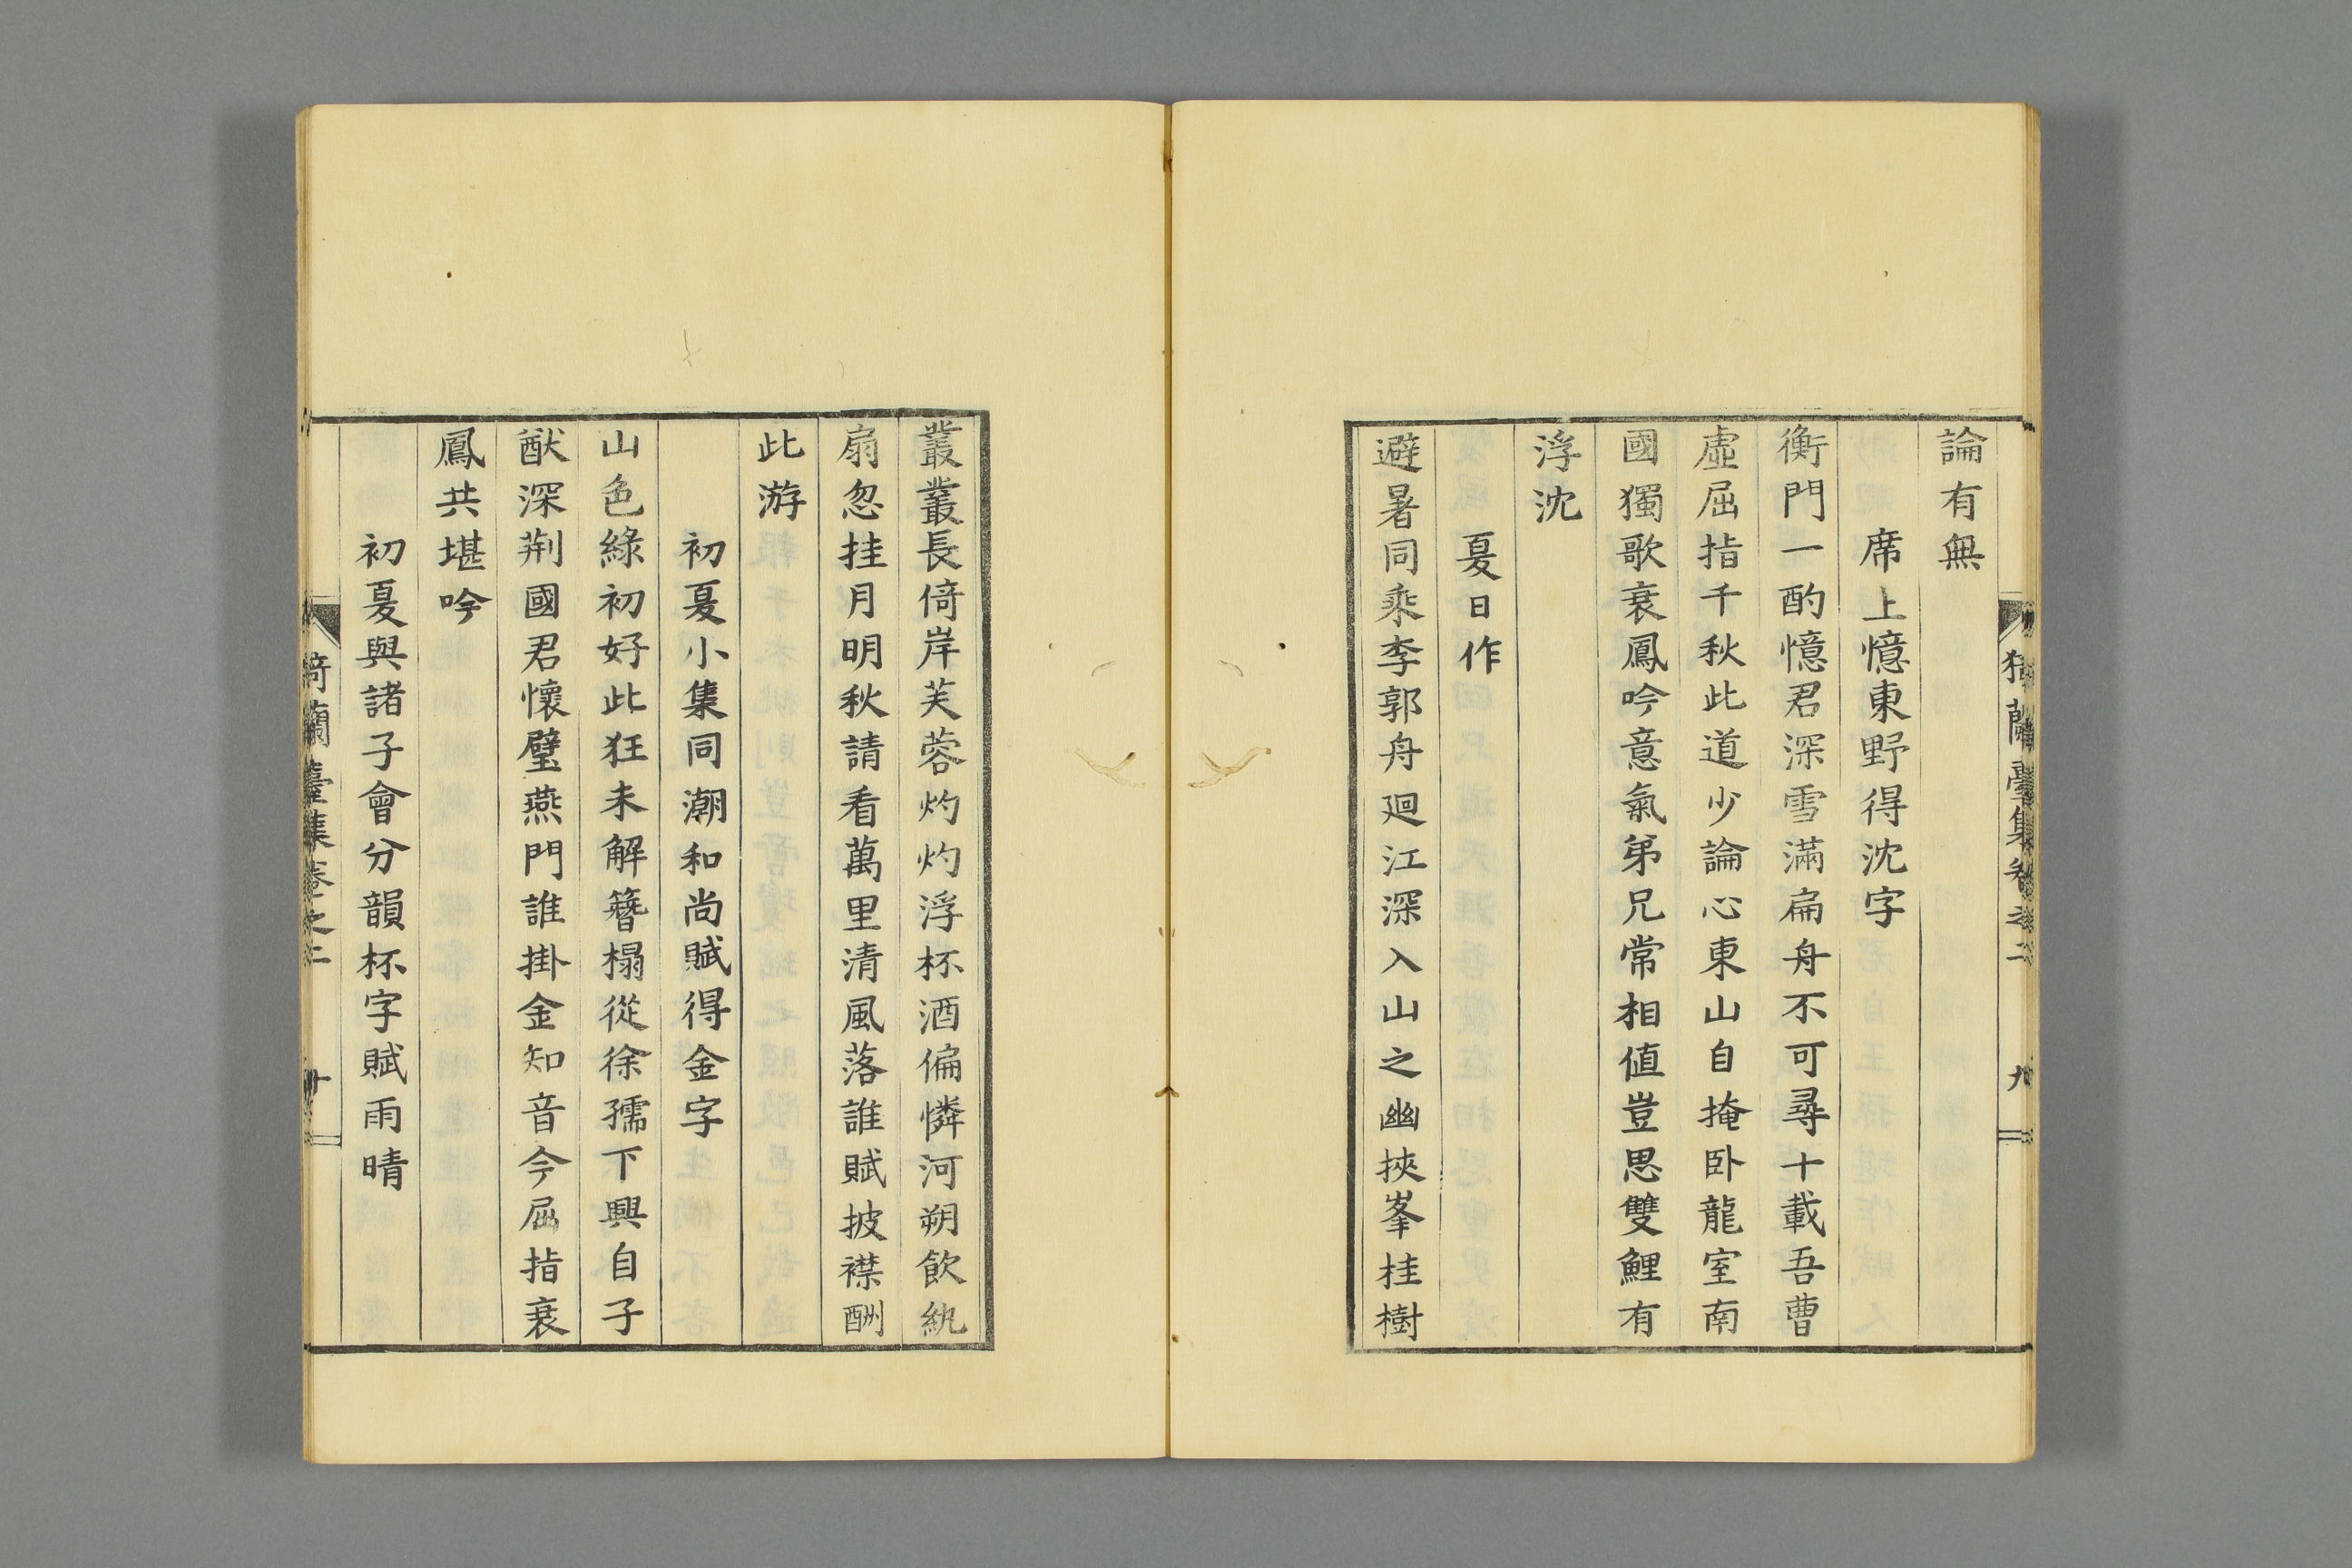 猗蘭臺集卷之二 九
論有無
席上憶東野得沈字
衡門一酌憶君深雪滿扁舟不可尋十載吾曹
虛屈指千秋此道少論心東山自掩卧龍室南
國獨歌衰鳳吟意氣弟兄常相値豈思雙鯉有
浮沈
夏日作
避暑同乘李郭舟廻江深入山之幽挾峯桂樹
叢叢長倚岸芙蓉灼灼浮杯酒偏憐河朔飲紈
扇忽挂月明秋請看萬里清風落誰賦披襟酬
此游
初夏小集同潮和尚賦得金字
山色綠初好此狂未解簪榻從徐孺下興自子
猷深荆國君懷璧燕門誰掛金知音今屈指衰
鳳共堪吟
初夏與諸子會分韻杯字賦雨晴
猗蘭臺集卷之二 十